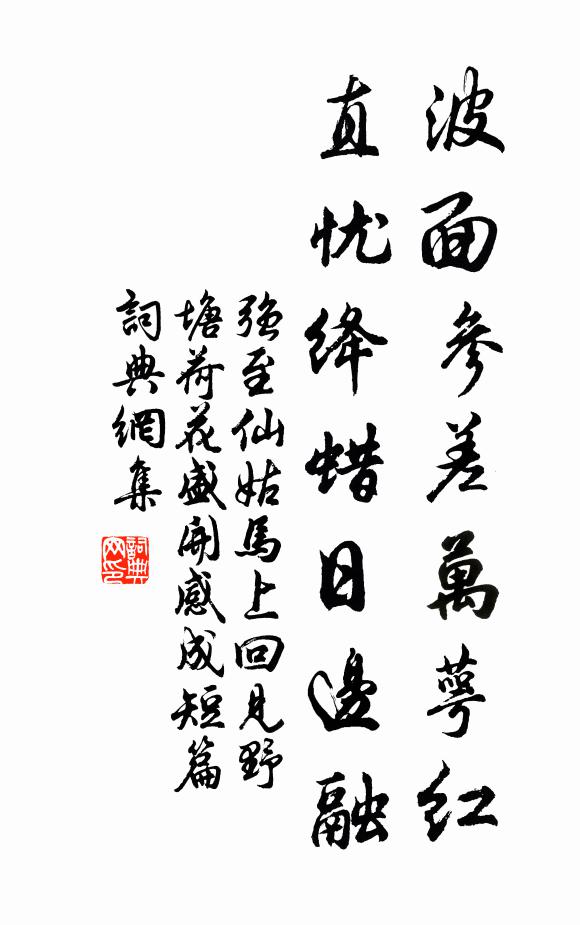 波面參差萬萼紅
直忧绛蜡日邊融
強至仙姑馬上回見野
塘荷花盛開感成短篇
詞典網集
詞典
网印